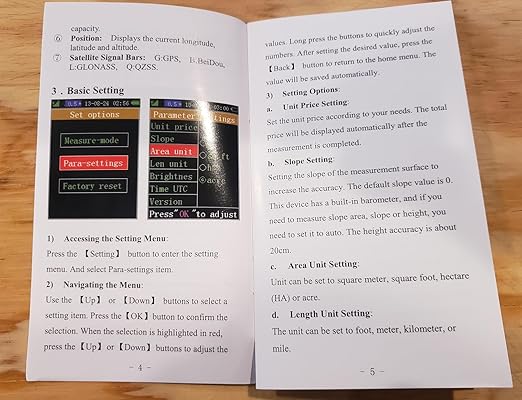 capacity.
⑥ Position: Displays the current longitude,
latitude and altitude.
⑦ Satellite Signal Bars: G:GPS, B:BeiDou,
L:GLONASS, Q:QZSS.
3 . Basic Setting
0.5+ 13-08-24 02:56
Set options
Measure-mode
Para-settings
Factory reset
0.5+ 13-
03:00
Parameter
Unit price
Slope
Area unit
Len unit
Brightnes
Time UTC
Version
ft
h
acre
Press"OK "to adjust
1) Accessing the Setting Menu:
Press the 【Setting】 button to enter the setting
menu. And select Para-settings item.
2) Navigating the Menu:
Use the 【Up】 or 【Down】 buttons to select a
setting item. Press the【OK】button to confirm the
selection. When the selection is highlighted in red,
press the【Up】 or【Down】buttons to adjust the
- 4 -
values. Long press the buttons to quickly adjust the
numbers. After setting the desired value, press the
【Back】 button to return to the home menu. The
value will be saved automatically.
3) Setting Options:
a. Unit Price Setting:
Set the unit price according to your needs. The total
price will be displayed automatically after the
measurement is completed.
b. Slope Setting:
Setting the slope of the measurement surface to
increase the accuracy. The default slope value is 0.
This device has a built-in barometer, and if you
need to measure slope area, slope or height, you
need to set it to auto. The height accuracy is about
20cm.
c. Area Unit Setting:
Unit can be set to square meter, square foot, hectare
(HA) or acre.
d. Length Unit Setting:
The unit can be set to foot, meter, kilometer, or
mile.
- 5 -